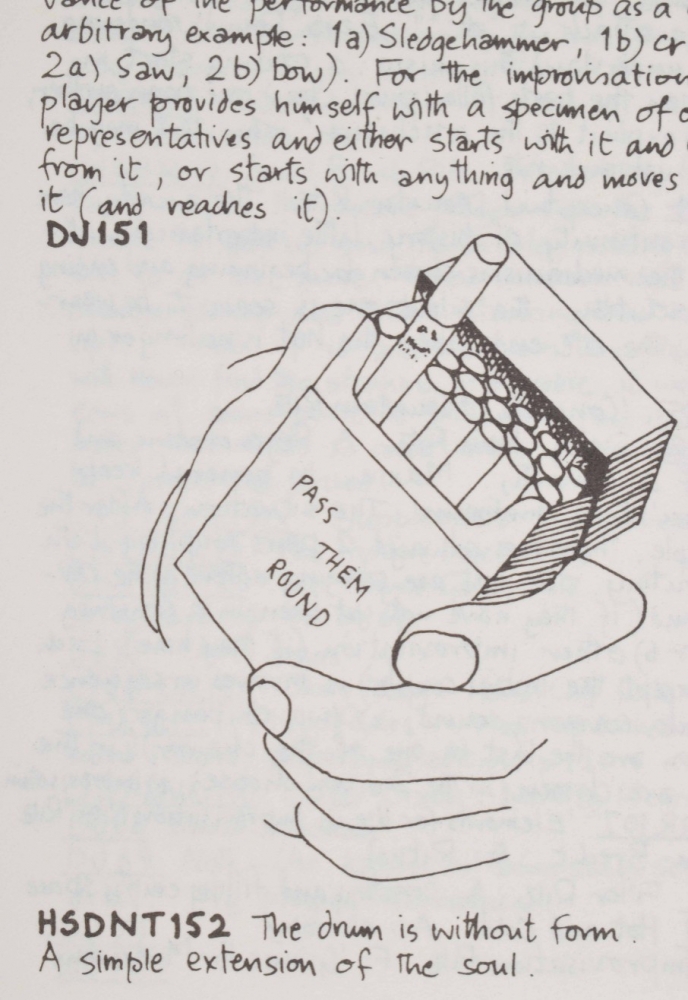 vance of the performance by the group as a
arbitrary example: 1a) Sledgehammer, 1b) cr
2a) Saw, 2b) bow). For the improvisation
player provides himself with a specimen of o
representatives and either starts with it and
from it, or starts with anything and moves
it (and reaches it).
DJ151
PASS
THEM
ROUND
HSDNT152 The drum is without form.
A simple extension of the soul